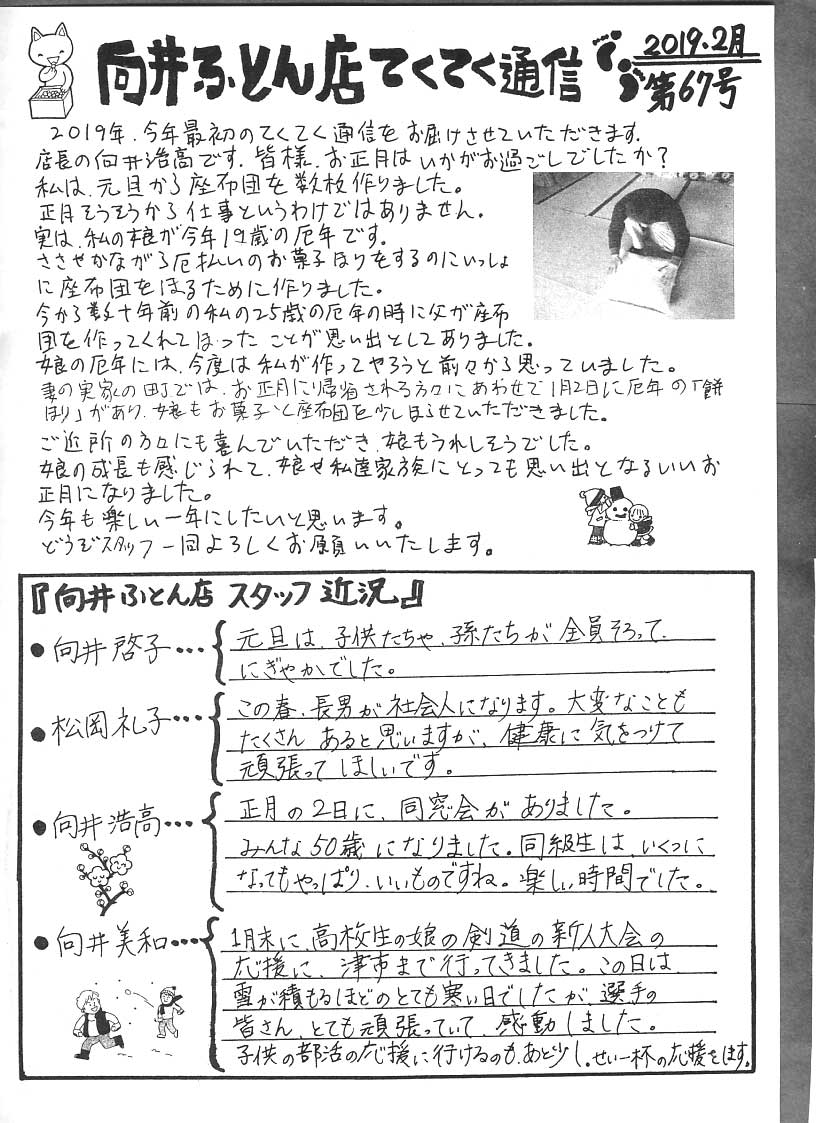 向井ふとん店てくてく通信
2019.2月
第67号
2019年、今年最初のてくてく通信をお届けさせていただきます。
店長の向井浩高です。皆様、お正月はいかがお過ごしでしたか？
私は、元旦から座布団を数枚作りました。
正月そうそうから仕事というわけではありません。
実は、私の娘が今年19歳の厄年です。
ささやかながら厄払いのお菓子ほりをするのにいっしょ
に座布団をほるために作りました。
今から数十年前の私の25歳の厄年の時に父が座布
団を作ってくれてほったことが思い出としてありました。
娘の厄年には、今度は私が作ってやろうと前々から思っていました。
妻の実家の町では、お正月に帰省される方々にあわせて1月2日に厄年の「餅
ほり」があり、娘もお菓子と座布団を少しほらせていただきました。
ご近所の方々にも喜んでいただき、娘もうれしそうでした。
娘の成長も感じられて、娘や私達家族にとっても思い出となるいいお
正月になりました。
今年も楽しい一年にしたいと思います。
どうぞスタッフ一同よろしくお願いいたします。
『向井ふとん店 スタッフ近況』
●向井啓子…
元旦は、子供たちや、孫たちが全員そろって、
にぎやかでした。
●松岡礼子…
この春、長男が社会人になります。大変なことも
たくさんあると思いますが、健康に気をつけて
頑張ってほしいです。
●向井浩高…
正月の2日に、同窓会がありました。
みんな50歳になりました。同級生は、いくつに
なってもやっぱり、いいものですね。楽しい時間でした。
●向井美和…
1月末に、高校生の娘の剣道の新人大会の
応援に、津市まで行ってきました。この日は、
雪が積もるほどのとても寒い日でしたが、選手の
皆さん、とても頑張っていて、感動しました。
子供の部活の応援に行けるのも、あと少し。せい一杯の応援をします。